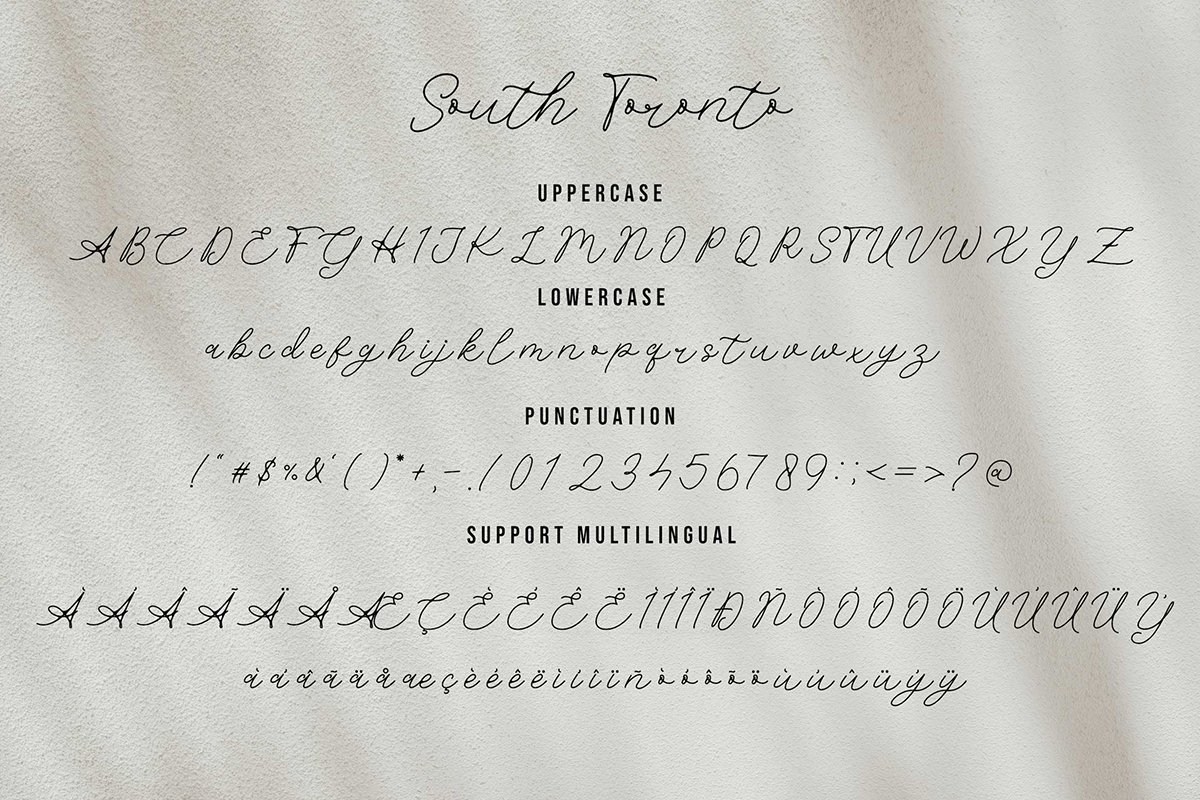 South Toronto
UPPERCASE
ABCDEFGHIJKLMNOPQRSTUVWXYZ
LOWERCASE
abcdefghijklmnopqrstuvwxyz
PUNCTUATION
!"#$%&'()*+,-./0123456789:;<=>?@
SUPPORT MULTILINGUAL
ÀÁÂÃÄÅÆÇÈÉÊËÌÍÎÏÐÑÒÓÔÕÖÙÚÛÜÝ
àáâãäåæçèéêëìíîïñòóôõöùúûüýÿ